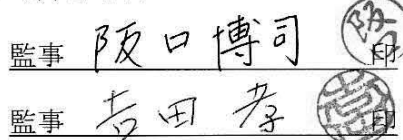 監事 阪口博司 印
監事 吉田 孝 印